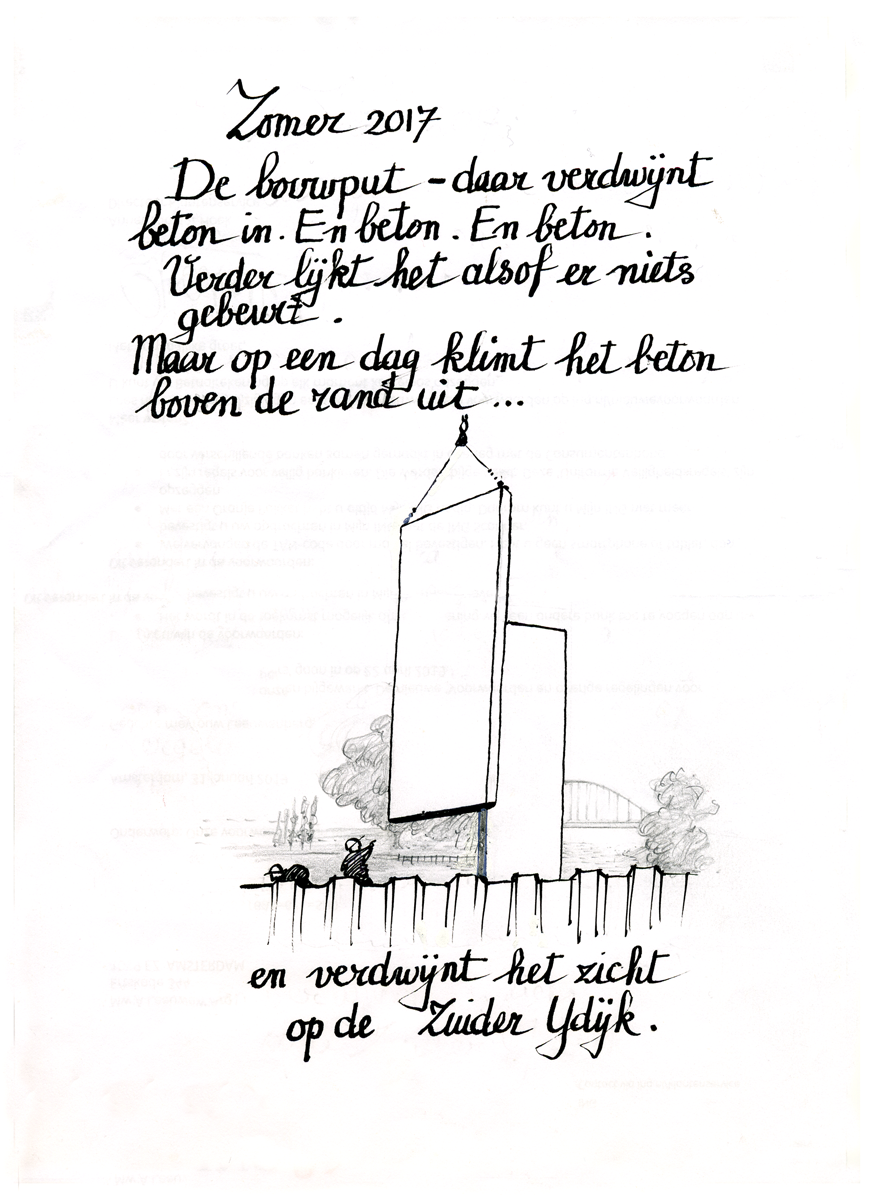 Zomer 2017
De bouwput - daar verdwijnt
beton in. En beton. En beton.
Verder lijkt het alsof er niets
gebeurt.
Maar op een dag klimt het beton
boven de rand uit...
en verdwijnt het zicht
op de Zuider Ydijk.